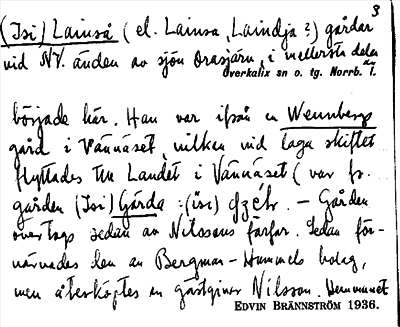 3
(Isi) Lainså (el. Lainsa, Laindja?) gårdar
vid NV. änden av sjön Orasjärv, i mellersta delen av
Överkalix sn o. tg. Norrb. l.
började här. Han var ifrån en Wennberg
gård i Vännäset, vilken vid laga skiftet
flyttades till Landet i Vännäset (var fr.
gården (Isi) Gårda :(isi) – Gården
övertogs sedan av Nilssons farfar. Sedan för-
värvades den av Bergman-Hummels bolag,
men återköptes av gästgivar Nilsson. Hemmanet
EDVIN BRÄNNSTRÖM 1936.